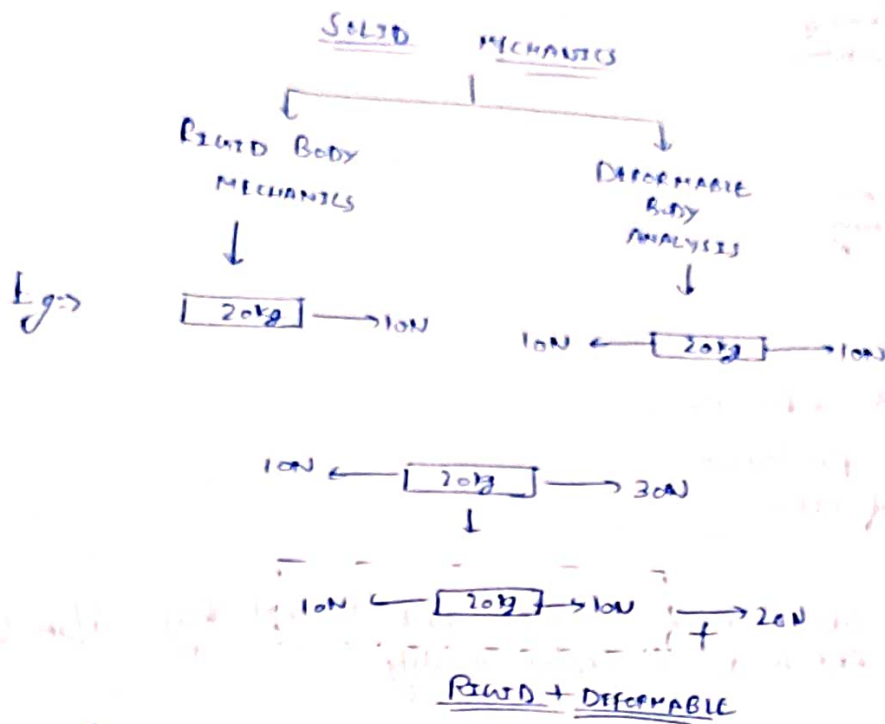 SOLID MECHANICS
RIGID BODY
MECHANICS
DEFORMABLE
BODY
ANALYSIS
Eg:->
20kg → 10N
10N ← 20kg → 10N
10N ← 20kg → 30N
10N ← 20kg → 10N + → 20N
RIGID + DEFORMABLE